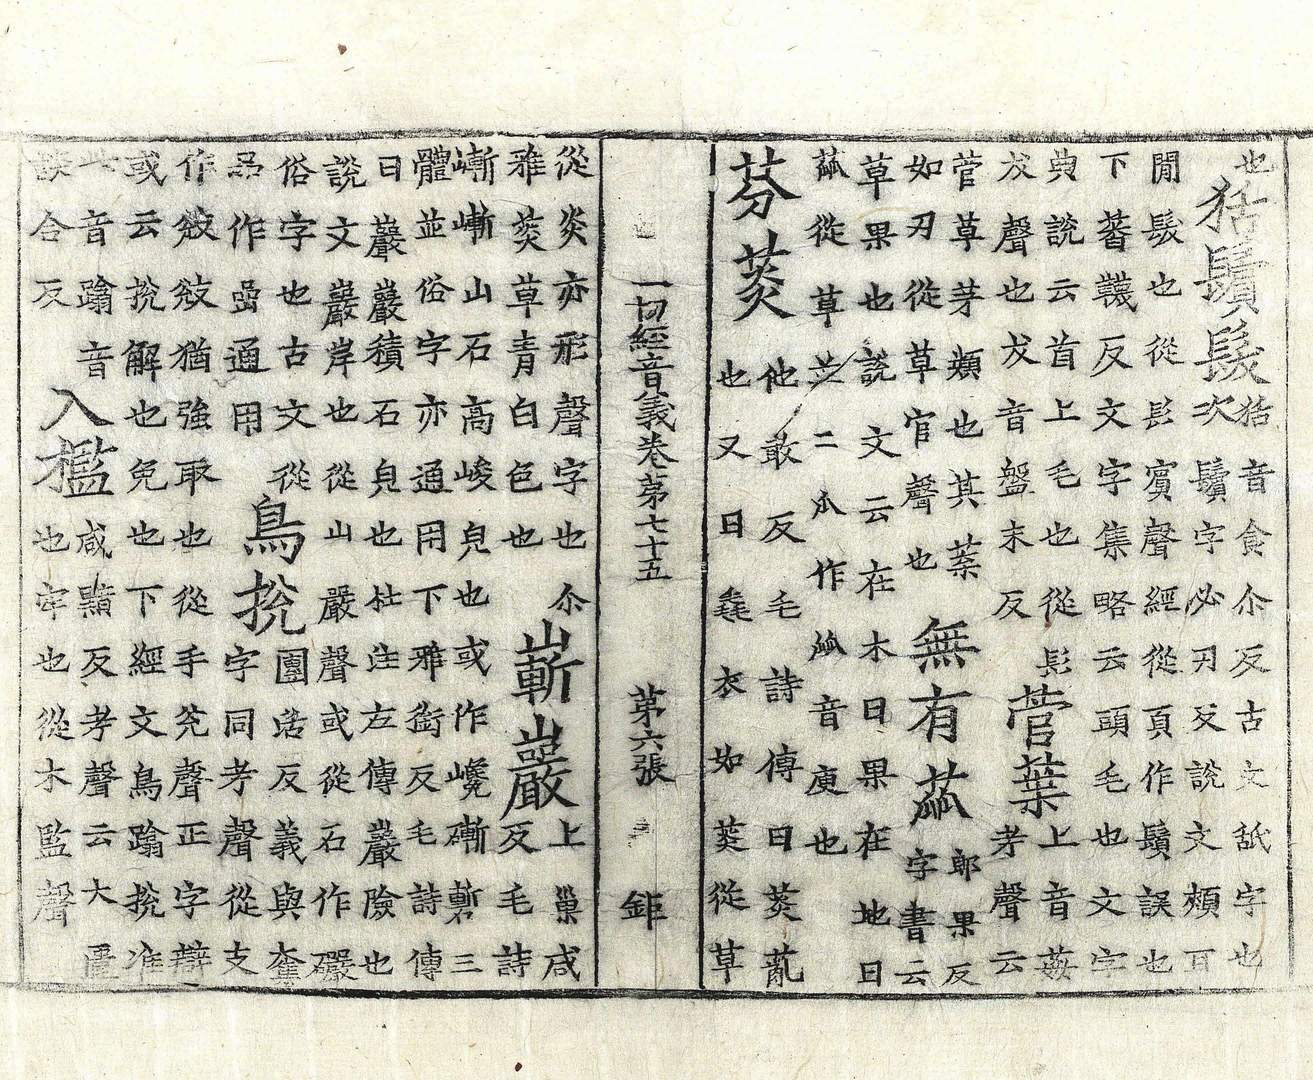 也
狧鬢髮
狧音食尒反古文舐字也
次鬢字必刃反說文頰耳
閒髮也從髟賓聲經從頁作鬢誤也
下蕃韈反文字集略云頭毛也文字
典說云首上毛也從髟
犮聲也犮音盤末反
菅葉
上音姦
考聲云
菅草茅類也其葉
如刃從草官聲也
無有蓏
郎果反
字書云
草果也說文云在木曰果在地曰
蓏從草二瓜作音庾也
芬菼
他敢反毛詩傳曰菼薍
也又曰毳衣如菼從草
一切經音義卷第七十五　第六張　鉅
從炎亦形聲字也尒
雅菼草青白色也
嶄巖
上巢咸
反毛詩
嶃嶃山石高峻皃也或作巉磛三
體並俗字亦通用下雅銜反毛詩傳
曰巖巖積石皃也杜注左傳巖險也
說文巖岸也從山嚴聲或從石作礹
俗字也古文從
喦作嵒通用
鳥挩
團活反義與奪
字同考聲從支
作敓敓猶強取也從手兊聲正字辯
或云挩解也免也下經文鳥踰挩准
音踰音
談合反
入檻
咸黤反考聲云大匱
也牢也從木監聲